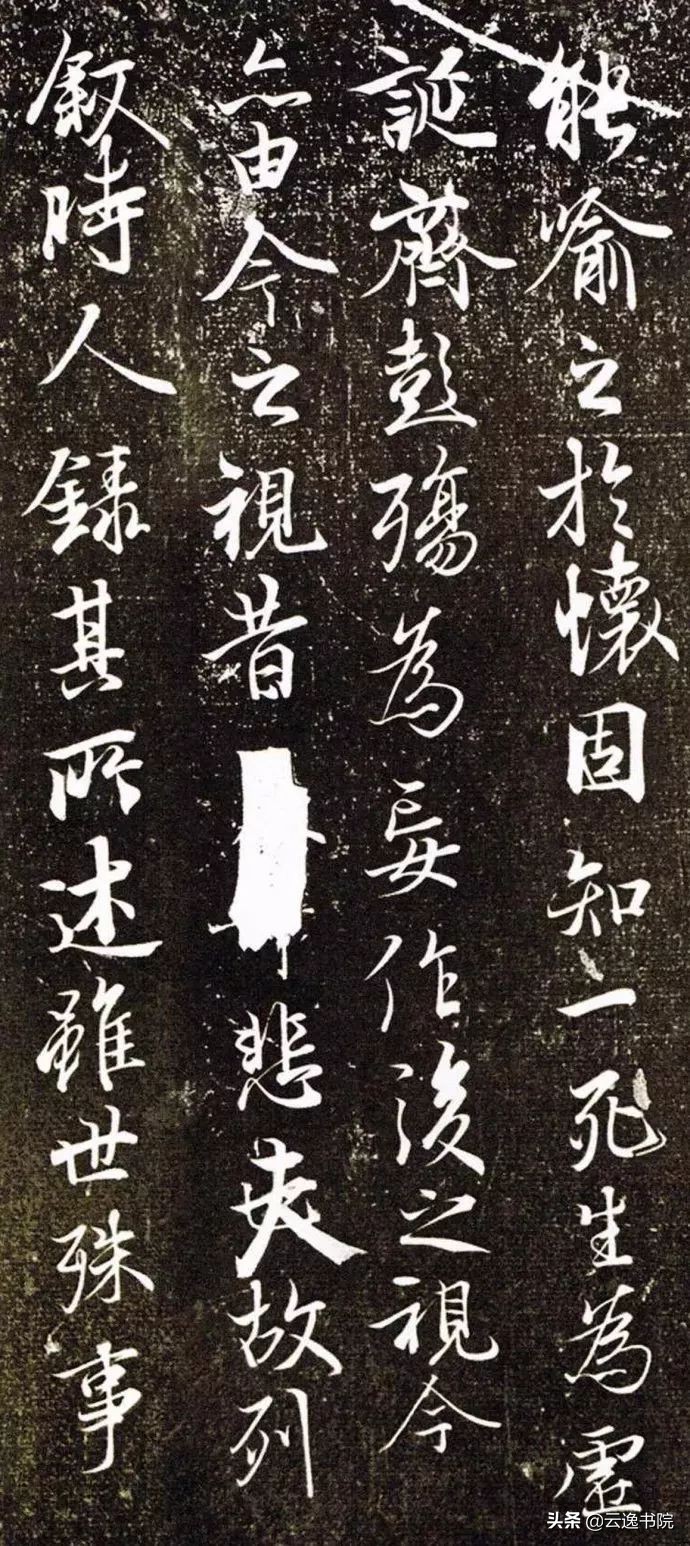 能喻之於懷固知一死生為虛
誕齊彭殤為妄作後之視今
亦由今之視昔悲夫故列
叙時人錄其所述雖世殊事
头条 @云逸书院